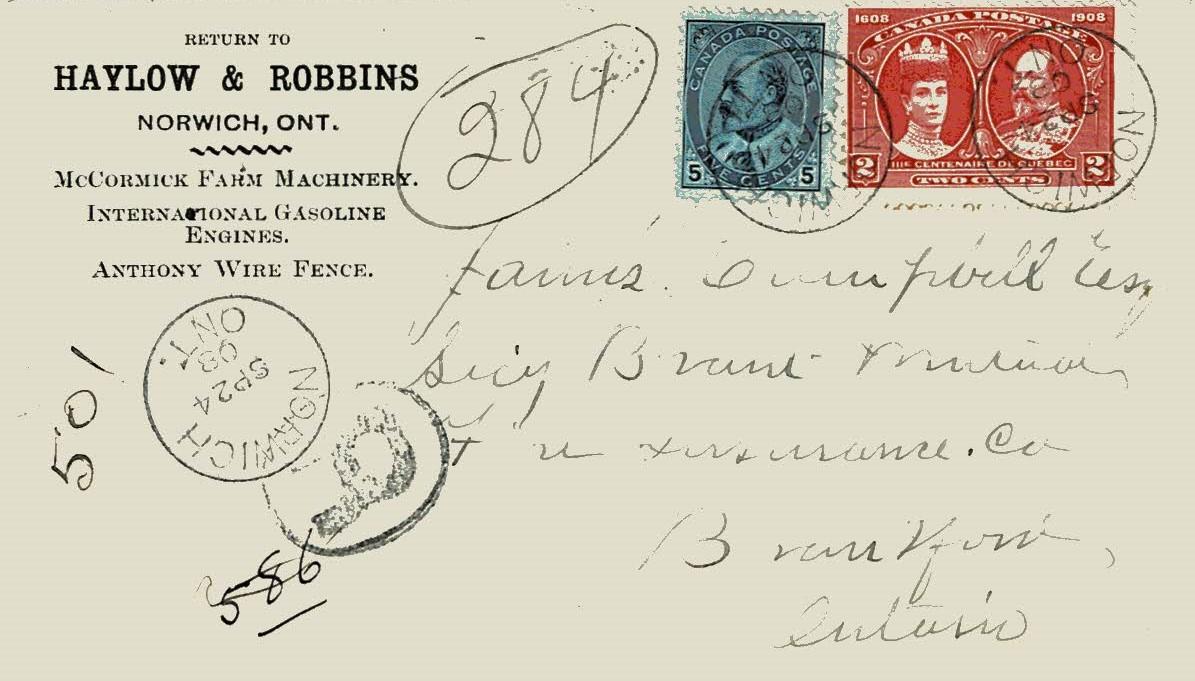 RETURN TO
HAYLOW & ROBBINS
NORWICH, ONT.
MCCORMICK FARM MACHINERY.
INTERNATIONAL GASOLINE
ENGINES.
ANTHONY WIRE FENCE.
284
CANADA POSTAGE
5 FIVE CENTS 5
1608 CANADA POSTAGE 1908
2 IIIE CENTENAIRE DE QUÉBEC 2
TWO CENTS
NORWICH
SP 24
08
ONT.
NORWICH
SP 24
08
ONT.
James Campbell Esq
Secy Brant Mutual
Fire Insurance. Co
Brantford,
Ontario
NORWICH
SP 24
08
ONT.
R
501
586